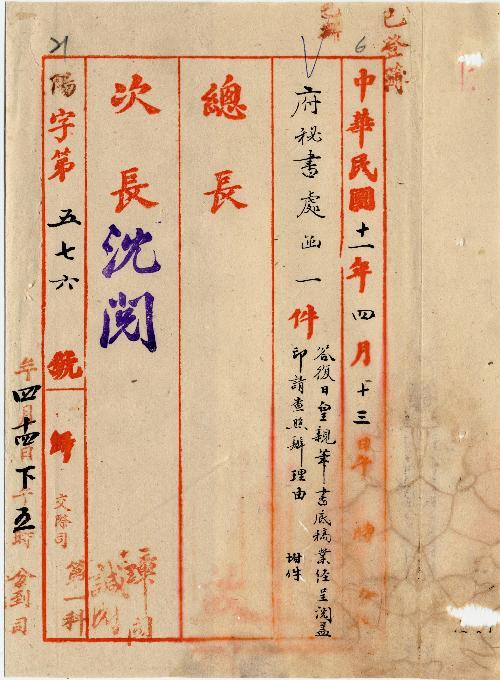 已登簿
中華民國十一年四月十三日午 時
府秘書處函一件
答復日皇親筆書底稿業經呈閱蓋
印請查照辦理由
附件
總長
次長
沈閱
陽字第五七六號
交際司
第一科
年四月十四日下午五時 分到司